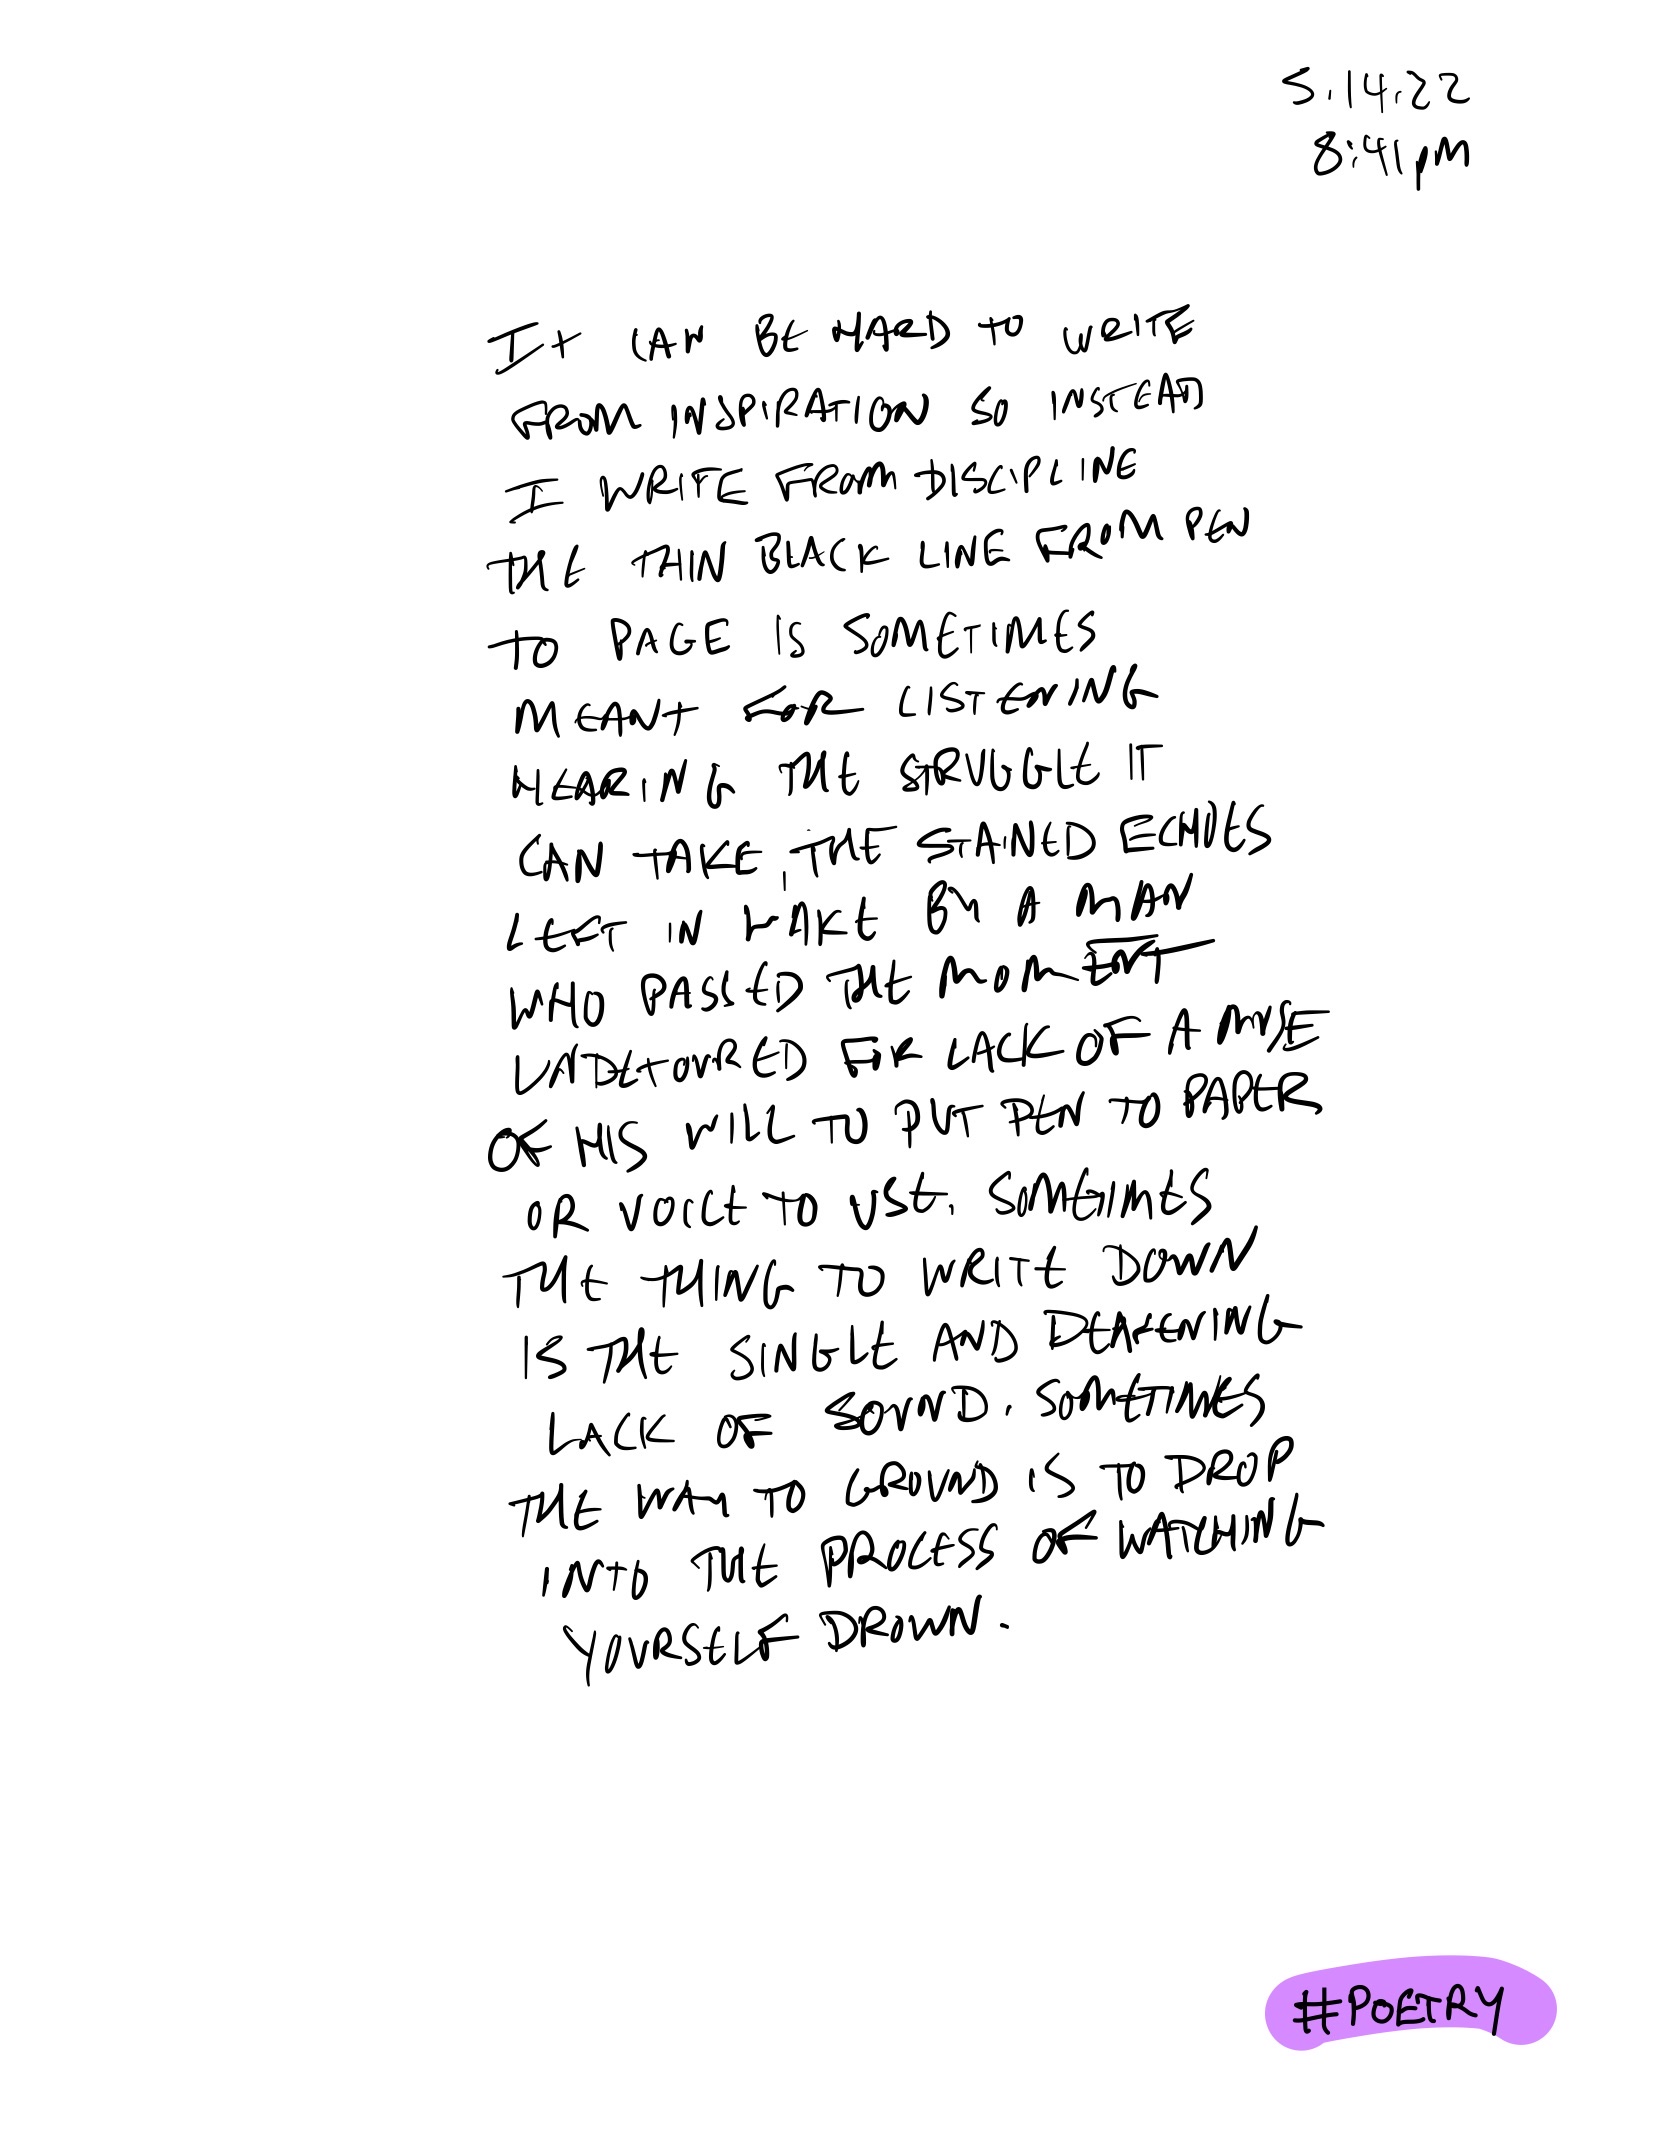 5.14.22
8:41pm
IT CAN BE HARD TO WRITE
FROM INSPIRATION SO INSTEAD
I WRITE FROM DISCIPLINE
THE THIN BLACK LINE FROM PEN
TO PAGE IS SOMETIMES
MEANT FOR LISTENING
HEARING THE STRUGGLE IT
CAN TAKE, THE STAINED ECHOES
LEFT IN WAKE BY A MAN
WHO PASSED THE MOMENT
UNDETOURED FOR LACK OF A MUSE
OF HIS WILL TO PUT PEN TO PAPER
OR VOICE TO USE. SOMETIMES
THE THING TO WRITE DOWN
IS THE SINGLE AND DEAFENING
LACK OF SOUND. SOMETIMES
THE WAY TO GROUND IS TO DROP
INTO THE PROCESS OF WATCHING
YOURSELF DROWN.
#POETRY